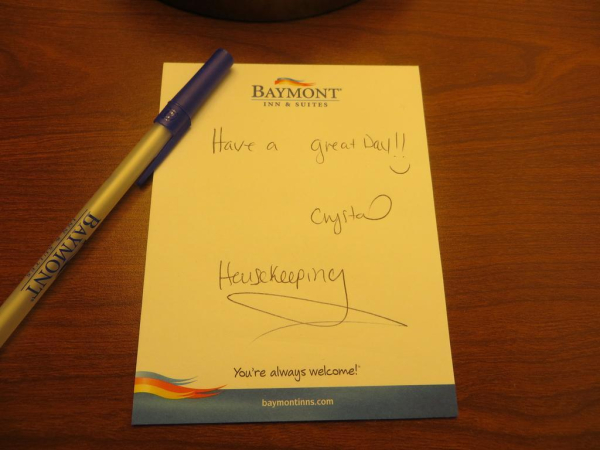 BAYMONT
INN & SUITES
Have a great Day!!
Crystal
Housekeeping
You're always welcome!
baymontinns.com
BAYMONT